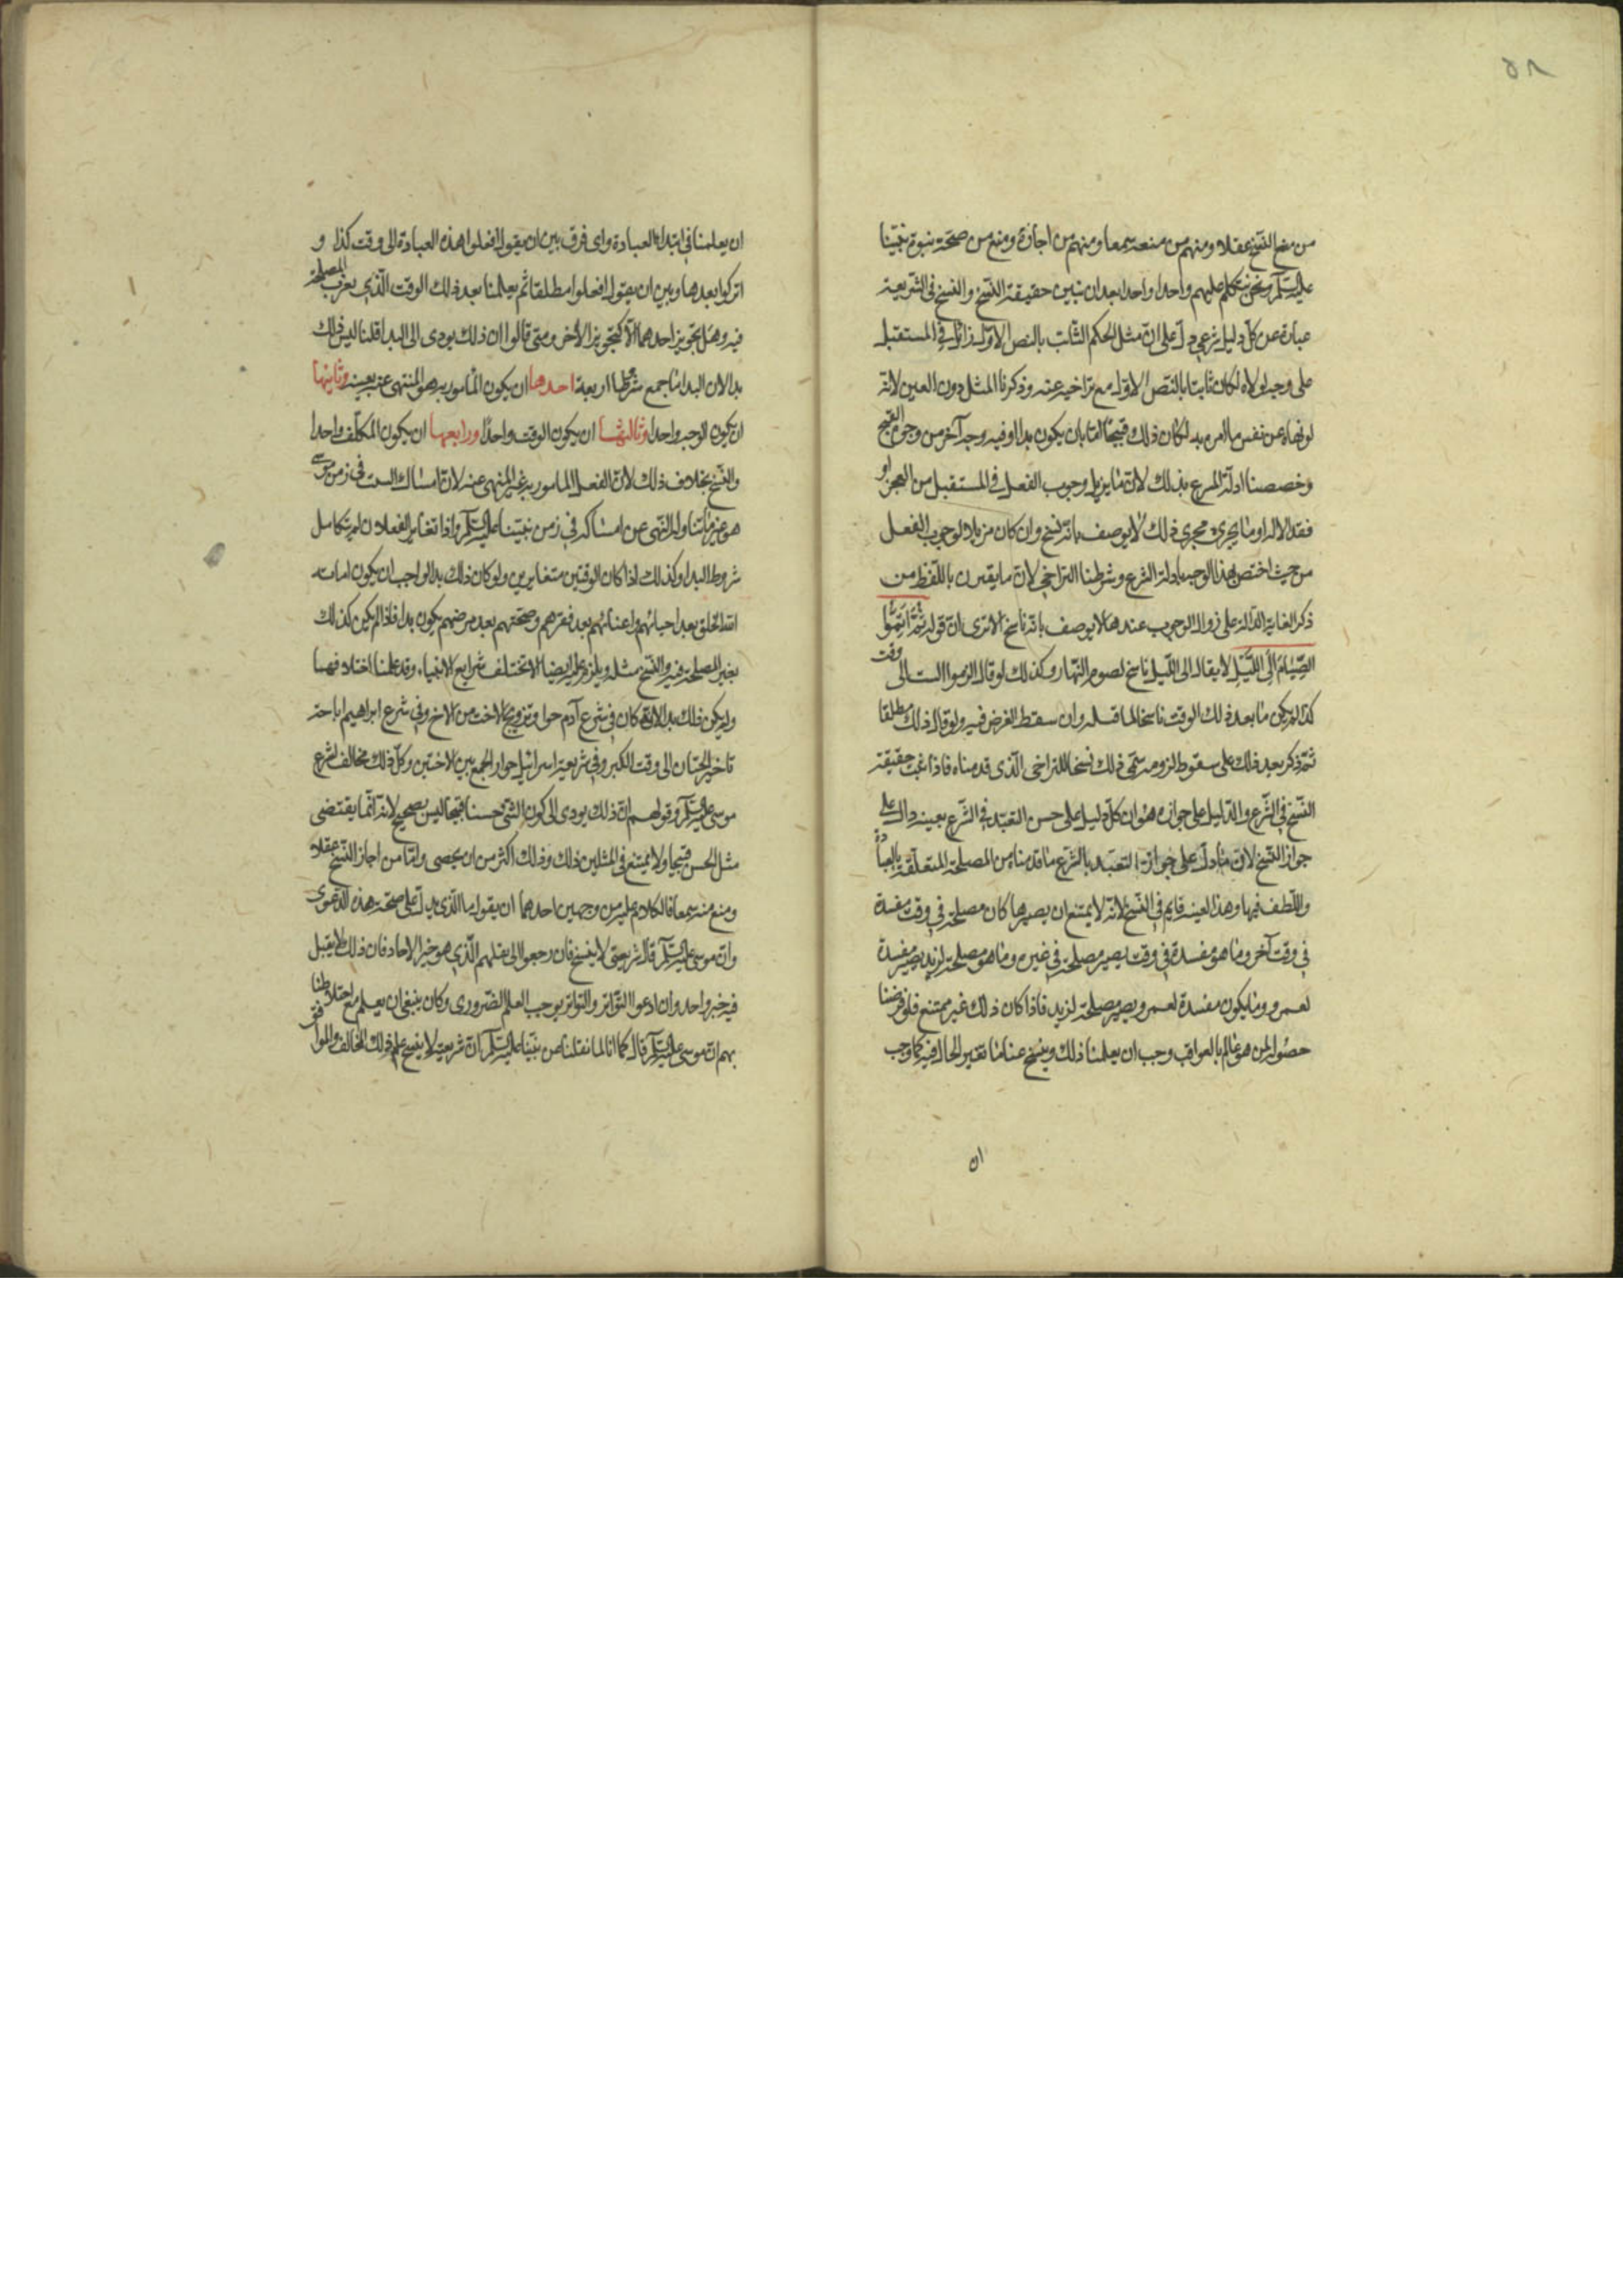 ٥٨
من منع النسخ عقلا ومنهم من منعه سمعا ومنهم من اجازه ومنع من صحة نبوة نبينا
عليه السلم ونحن نتكلم عليهم واحدا واحدا بعد ان نبين حقيقة النسخ والنسخ فى الشريعة
عبارة عن كل دليل شرعي دل على ان مثل الحكم الثابت بالنص الاول زائل في المستقبل
على وجه لولاه لكان ثابتا بالنص الاول مع تراخيه عنه وذكرنا المثل دون العين لانه
لو نهاه عن نفس ما امره به لكان ذلك قبيحا اما بان يكون بدا او فيه وجه آخر من وجوه القبح
وخصصنا ادلة الشرع بذلك لان ما يزيل وجوب الفعل في المستقبل من العجز او
فقد الالة او ما يجري مجرى ذلك لا يوصف بانه نسخ وان كان مزيلا لوجوب الفعل
من حيث اختص هذا الوجه بادلة الشرع وشرطنا التراخي لان ما يقترن باللفظ من
ذكر الغاية الدالة على زوال الوجوب عندها لا يوصف بانه ناسخ الا ترى ان قوله ثم اتموا
الصيام الى الليل لا يقال الى الليل ناسخ لصوم النهار وكذلك لو قال الزموا السبت الى وقت
كذا لم يكن ما بعد ذلك الوقت ناسخا لما قبله وان سقط الفرض فيه ولو قال ذلك مطلقا
ثم ذكر بعد ذلك على سقوط لزومه سمى ذلك نسخا للتراخى الذى قدمناه فاذا ثبت حقيقة
النسخ في الشرع والدليل على جوازه هو ان كل دليل على حسن التعبد في الشرع بعينه دال على
جواز النسخ لان ما دل على جواز التعبد بالشرع ما قدمناه من المصلحة المتعلقة بالعبادة
واللطف فيها وهذا لعينه قايم في النسخ لانه لا يمتنع ان يصير ما كان مصلحة في وقت مفسدة
في وقت آخر وما هو مفسدة في وقت يصير مصلحة في غيره وما هو مصلحة لزيد يصير مفسدة
لعمرو وما يكون مفسدة لعمرو يصير مصلحة لزيد فاذا كان ذلك غير ممتنع فلو فرضنا
حصوله لمن هو عالم بالعواقب وجب ان يعلمنا ذلك وينسخ عنا ما تغير الحال فيه كما وجب
ان
ان يعلمنا في ابتداء العبادة واى فرق بين ان يقول افعلوا هذه العبادة الى وقت كذا و
اتركوا بعدها وبين ان يقول افعلوا مطلقا ثم يعلمنا بعد ذلك الوقت الذي يغرب المصلحة
فيه وهل تجويز احدهما الا كتجويز الاخر ومتى قالوا ان ذلك يودى الى البدا قلنا ليس ذلك
بدا لان البدا ما جمع شروطا اربعة احدها ان يكون المامور به هو المنتهى عنه بعينه وثانيها
ان يكون الوجه واحدا وثالثها ان يكون الوقت واحدا ورابعها ان يكون المكلف واحدا
والنسخ بخلاف ذلك لان الفعل المامور به غير المنهى عنه لان امساك السبت في زمن موسى
هو غير ما تناوله النهى عن امساكه في زمن نبينا عليه السلم واذا تغاير الفعلان لم يتكامل
شروط البدا وكذلك اذا كان الوقتين متغايرين ولو كان ذلك بدا لواجب ان يكون امات
الله الخلق بعد احيائهم واغنائهم بعد فقرهم وصحتهم بعد مرضهم يكون بدا فاذا لم يكن كذلك
بغير المصلحة فيه والنسخ مثله ويلزم عليه ايضا الا تختلف شرايع الانبياء وقد علمنا اختلافهما
ولم يكن ذلك بدا لانه كان في شرع آدم حوا وتزويج الاخت من الاخ وفي شرع ابراهيم اباحة
تاخير الختان الى وقت الكبر وفي شريعة اسرائيل جواز الجمع بين الاختين وكل ذلك مخالف لشرع
موسى عليه السلم وقولهم ان ذلك يودى الى كون الشئ حسنا قبيحا ليس بصحيح لانه انما يقتضى
مثل الحسن قبيحا ولا يمتنع في المثلين ذلك وذلك اكثر من ان يحصى واما من اجاز النسخ عقلا
ومنع منه سمعا فالكلام عليه من وجهين احدهما ان يقول ما الذى يدل على صحة هذه الدعوى
وان موسى عليه السلم قال شريعتى لا ينسخ فان رجعوا الى نقلهم الذى هو خبر الاحاد فان ذلك لا يقبل
فيه خبر واحد وان ادعوا التواتر والتواتر يوجب العلم الضرورى وكان ينبغي ان يعلم مع اختلاطنا
بهم ان موسى عليه السلم قال كما انا لما نقلنا عن نبينا عليه السلم ان شريعته لا ينسخ علم ذلك المخالف والموافق